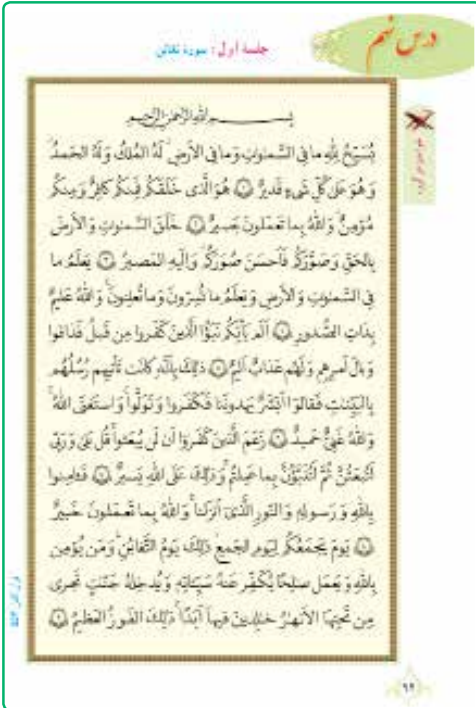 درس نهم
جلسهٔ اول : سورهٔ تغابن
بِسْمِ اللهِ الرَّحْمٰنِ الرَّحِيمِ
يُسَبِّحُ لِلّٰهِ ما فِي السَّمٰوٰتِ وَ ما فِي الاَرضِ لَهُ المُلكُ وَ لَهُ الحَمدُ
وَ هُوَ عَلىٰ كُلِّ شَيءٍ قَديرٌ ﴿١﴾ هُوَ الَّذی خَلَقَكُم فَمِنكُم كافِرٌ وَ مِنكُم
مُؤمِنٌ وَ اللهُ بِما تَعمَلونَ بَصيرٌ ﴿٢﴾ خَلَقَ السَّمٰوٰتِ وَ الاَرضَ
بِالحَقِّ وَ صَوَّرَكُم فَاَحسَنَ صُوَرَكُم وَ اِلَيهِ المَصيرُ ﴿٣﴾ يَعلَمُ ما
فِي السَّمٰوٰتِ وَ الاَرضِ وَ يَعلَمُ ما تُسِرّونَ وَ ما تُعلِنونَ وَ اللهُ عَليمٌ
بِذاتِ الصُّدورِ ﴿٤﴾ اَلَم يَأتِكُم نَبَؤُا الَّذينَ كَفَروا مِن قَبلُ فَذاقوا
وَبالَ اَمرِهِم وَ لَهُم عَذابٌ اَليمٌ ﴿٥﴾ ذٰلِكَ بِاَنَّهُ كانَت تَأتيهِم رُسُلُهُم
بِالبَيِّنٰتِ فَقالوا اَبَشَرٌ يَهدونَنا فَكَفَروا وَ تَوَلَّوا وَ استَغنَی اللهُ
وَ اللهُ غَنِیٌّ حَميدٌ ﴿٦﴾ زَعَمَ الَّذينَ كَفَروا اَن لَن يُبعَثوا قُل بَلىٰ وَ رَبّی
لَتُبعَثُنَّ ثُمَّ لَتُنَبَّؤُنَّ بِما عَمِلتُم وَ ذٰلِكَ عَلَى اللهِ يَسيرٌ ﴿٧﴾ فَـٔامِنوا
بِاللهِ وَ رَسولِهِ وَ النّورِ الَّذی اَنزَلنا وَ اللهُ بِما تَعمَلونَ خَبيرٌ
﴿٨﴾ يَومَ يَجمَعُكُم لِيَومِ الجَمعِ ذٰلِكَ يَومُ التَّغابُنِ وَ مَن يُؤمِن
بِاللهِ وَ يَعمَل صٰلِحًا يُكَفِّر عَنهُ سَيِّـٔاتِهِ وَ يُدخِلهُ جَنّٰتٍ تَجری
مِن تَحتِهَا الاَنهٰرُ خٰلِدينَ فيها اَبَدًا ذٰلِكَ الفَوزُ العَظيمُ ﴿٩﴾